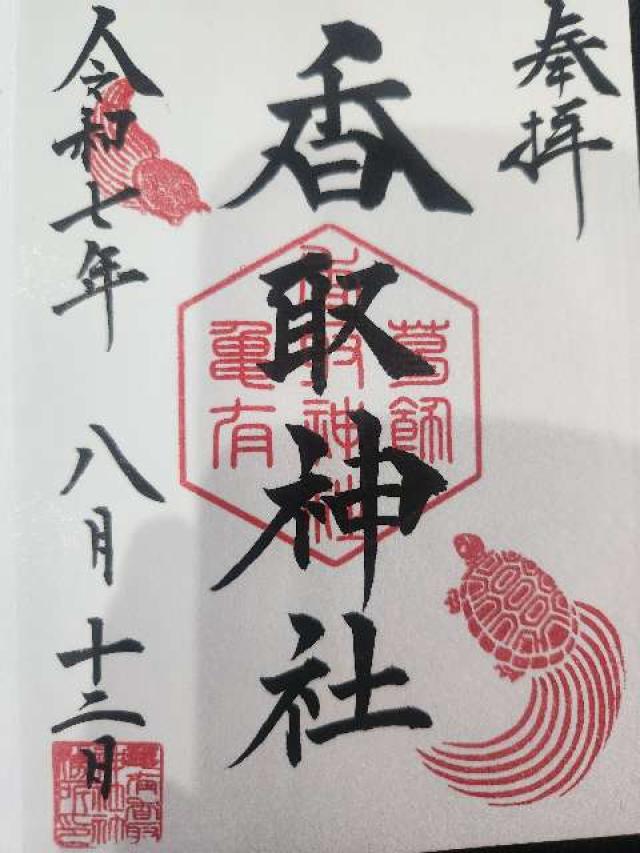 奉拝
香取神社
葛飾
香取神社
亀有
令和七年 八月十二日